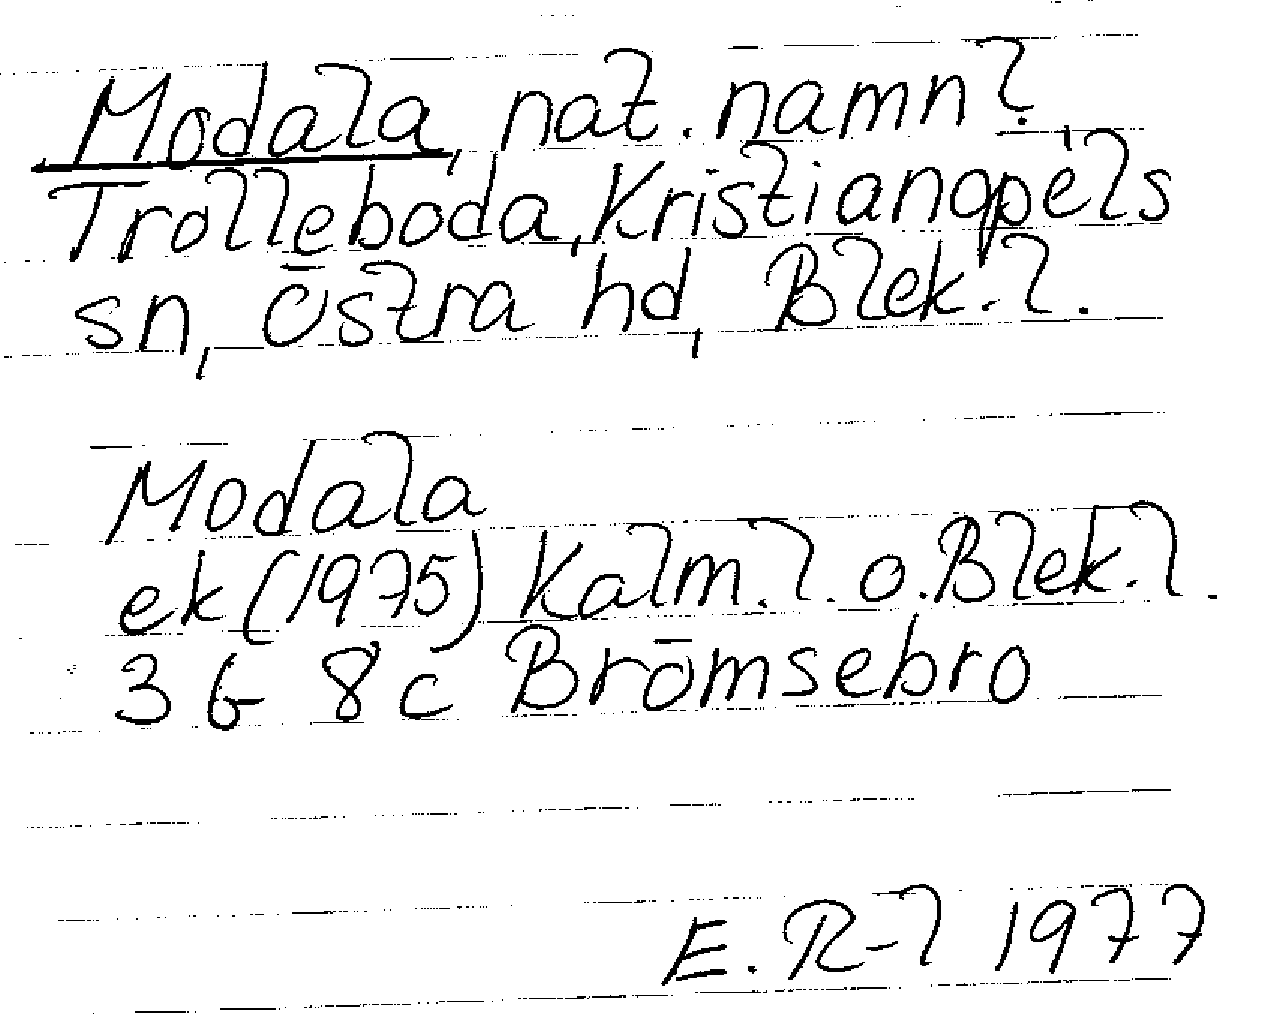 Modala, nat. namn?
Trolleboda, Kristianopels
sn, Östra hd, Blek. l.
Modala
ek (1975) Kalm. l. o. Blek. l.
3 G 8c Brömsebro
E. R-l 1977